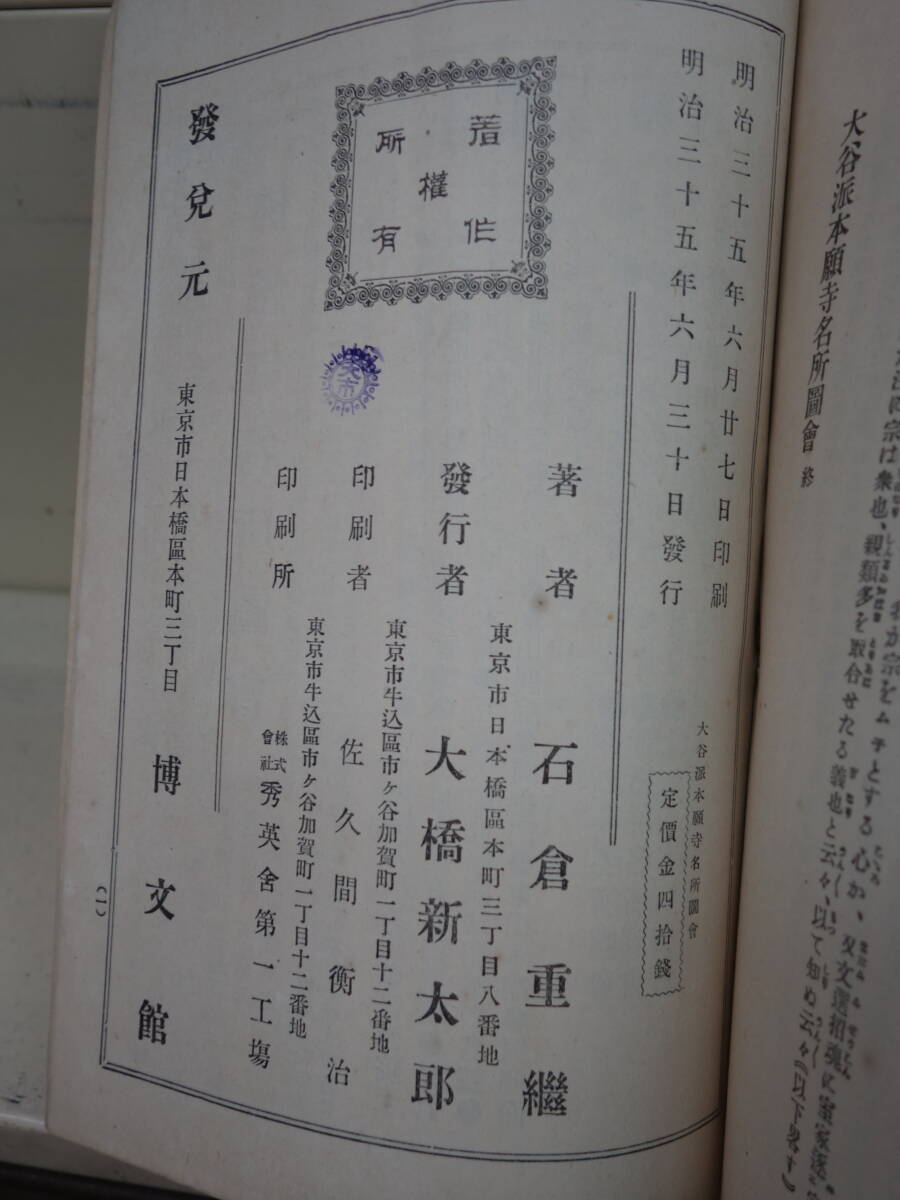 大谷派本願寺名所圖會 終
明治三十五年六月廿七日印刷
明治三十五年六月三十日發行
大谷派本願寺名所圖會
定價金四拾錢
著作
權
所有
著者 石倉重繼
東京市日本橋區本町三丁目八番地
發行者 大橋新太郎
東京市牛込區市ヶ谷加賀町一丁目十二番地
印刷者 佐久間衡治
東京市牛込區市ヶ谷加賀町一丁目十二番地
印刷所 株式會社 秀英舍第一工場
發兌元 東京市日本橋區本町三丁目 博文館
(一)